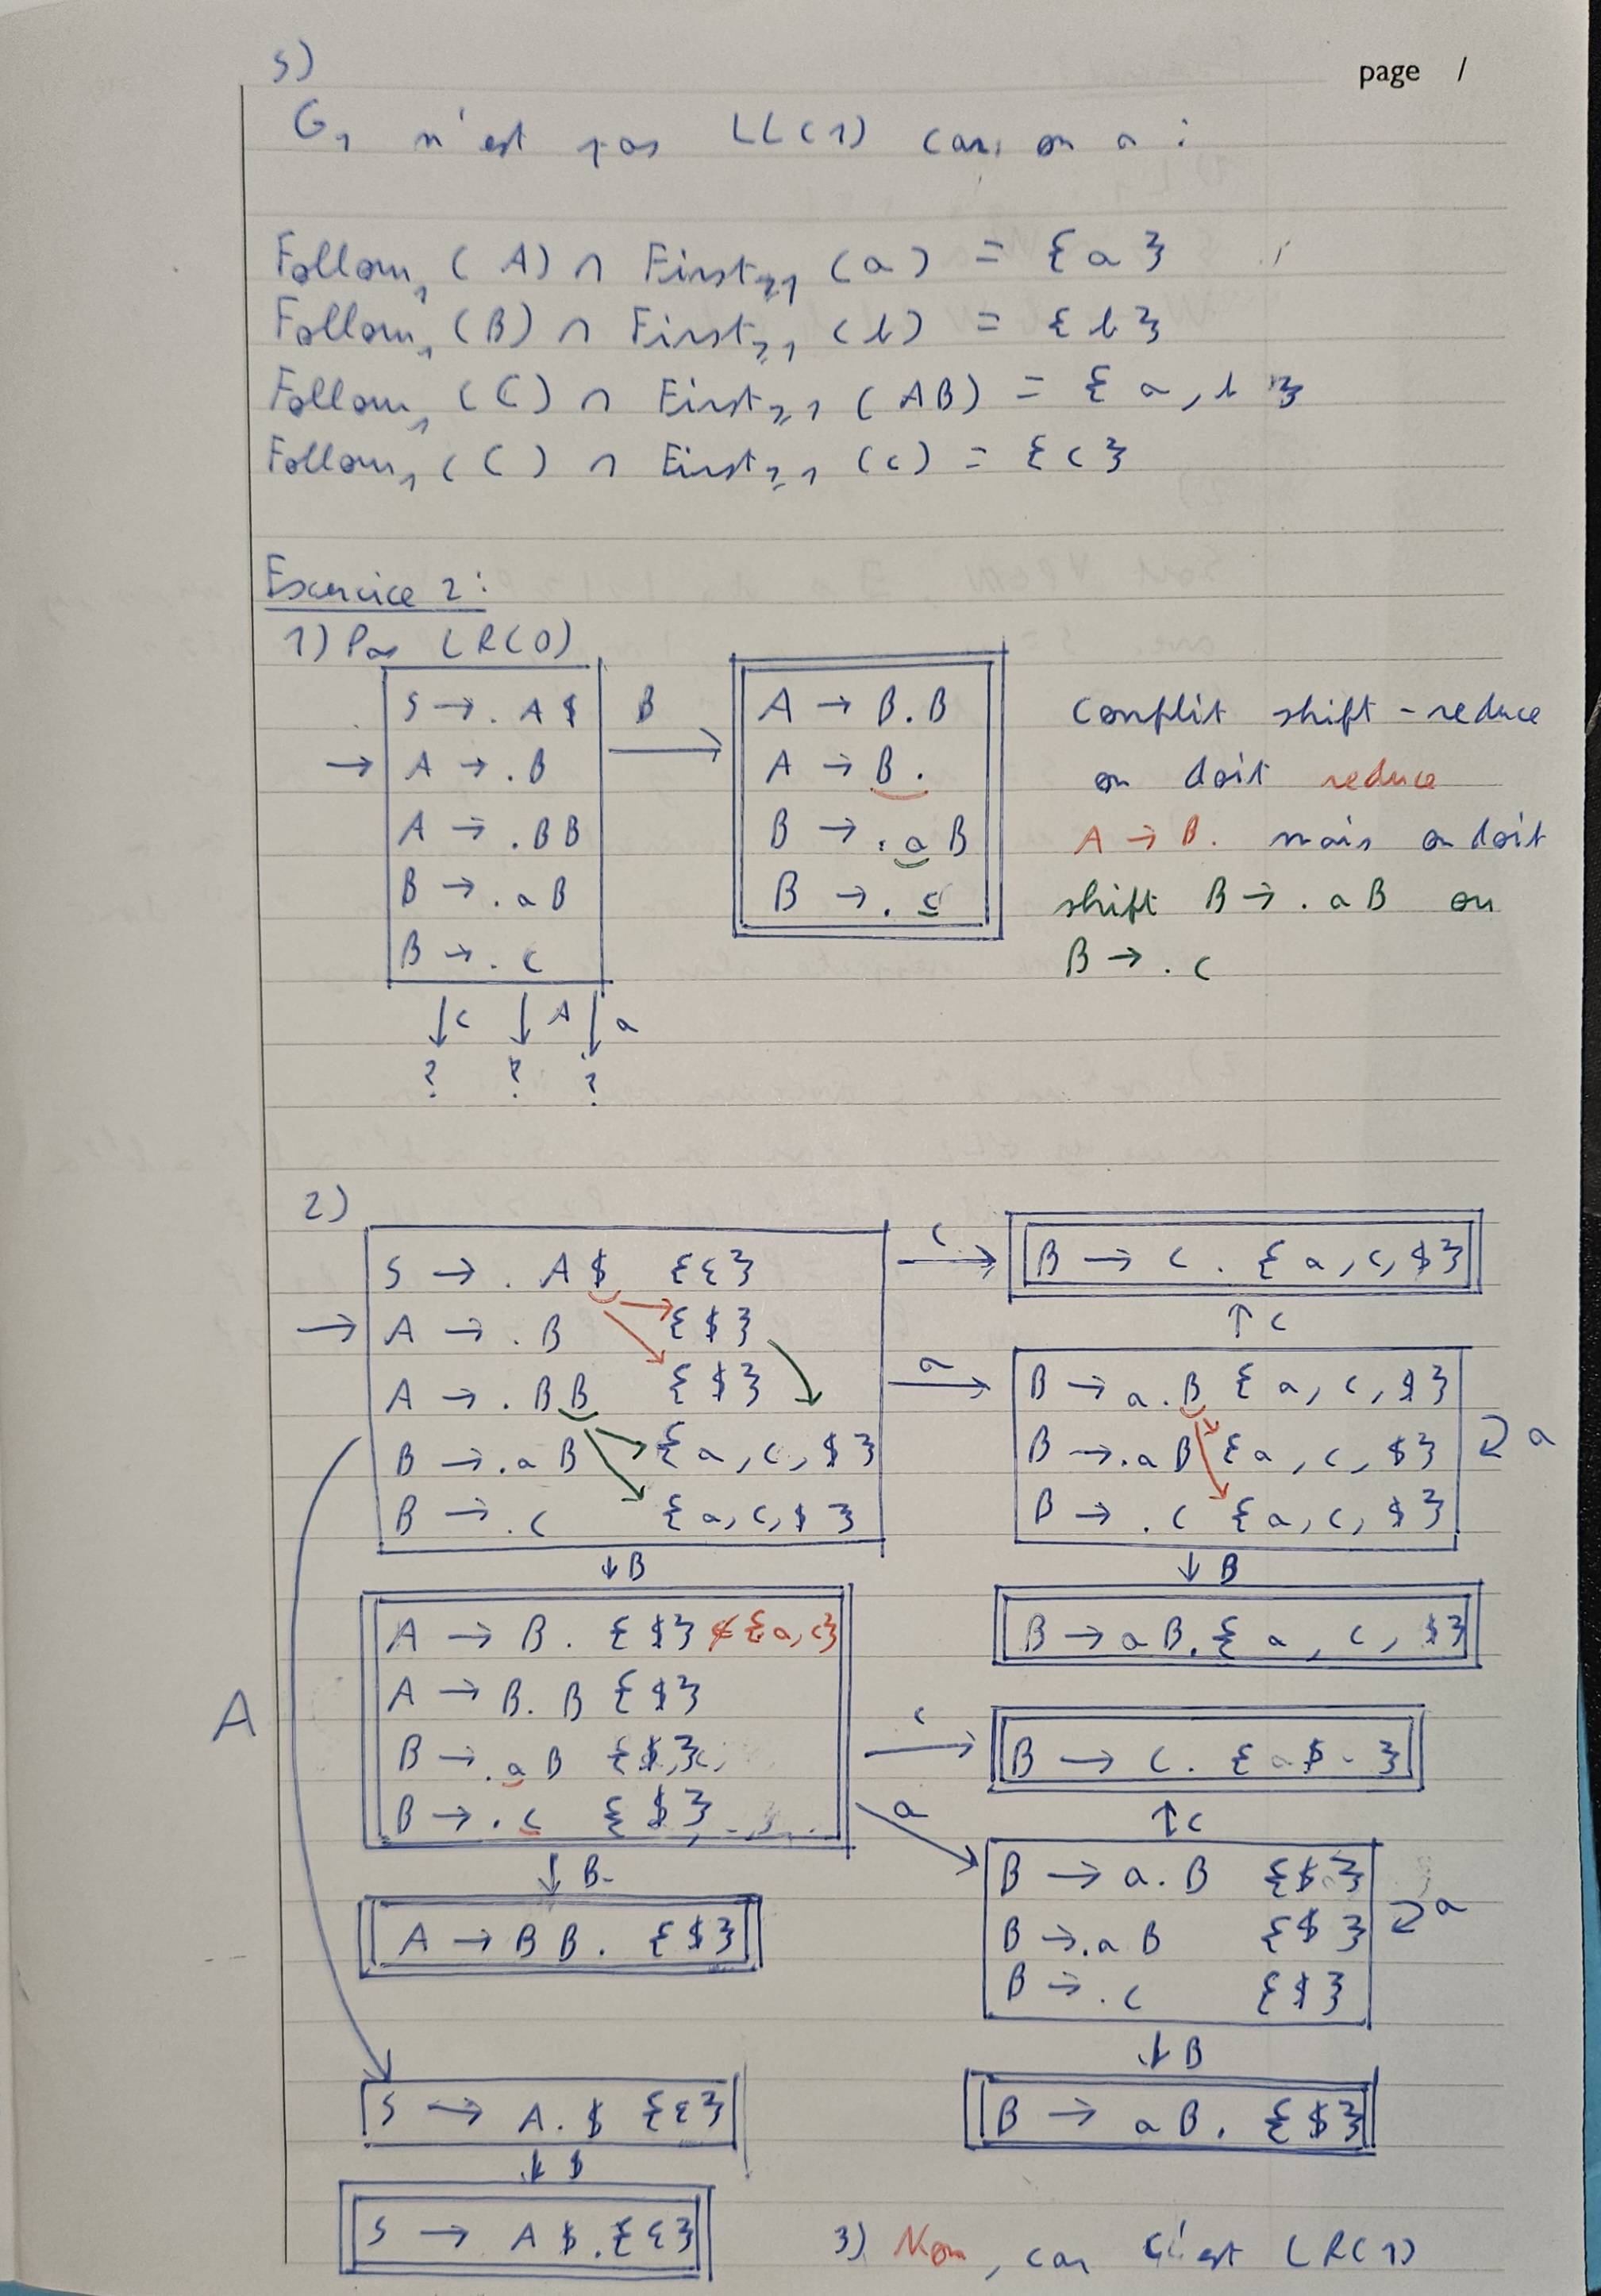 5)
page /
G₁ n'est pas LL(1) car, on a :
Follow₁ (A) ∩ First≥₁ (a) = {a}
Follow₁ (B) ∩ First≥₁ (b) = {b}
Follow₁ (C) ∩ First≥₁ (AB) = {a, b}
Follow₁ (C) ∩ First≥₁ (c) = {c}
Exercice 2 :
1) Pas LR(0)
S → . A $
→ A → . B
A → . BB
B → . aB
B → . c
B
A → B . B
A → B .
B → . a B
B → . c
Conflit shift-reduce
on doit reduce
A → B . mais on doit
shift B → . aB ou
B → . c
↓ c ↓ A ↓ a
? ? ?
2)
S → . A $ {ε}
→ A → . B {$}
A → . BB {$}
B → . aB {a, c, $}
B → . c {a, c, $}
c →
B → c . {a, c, $}
↑ c
a →
B → a . B {a, c, $}
B → . aB {a, c, $}
B → . c {a, c, $}
a
↓ B
↓ B
A → B . {$} ∉ {a, c}
A → B . B {$}
B → . a B {$}
B → . c {$}
B → aB . {a, c, $}
c →
B → c . {$}
↑ c
a
B → a . B {$}
B → . a B {$}
B → . c {$}
a
↓ B
A → B B . {$}
A
↓ B
S → A . $ {ε}
B → aB . {$}
↓ $
S → A $ . {ε}
3) Non, car c'est LR(1)